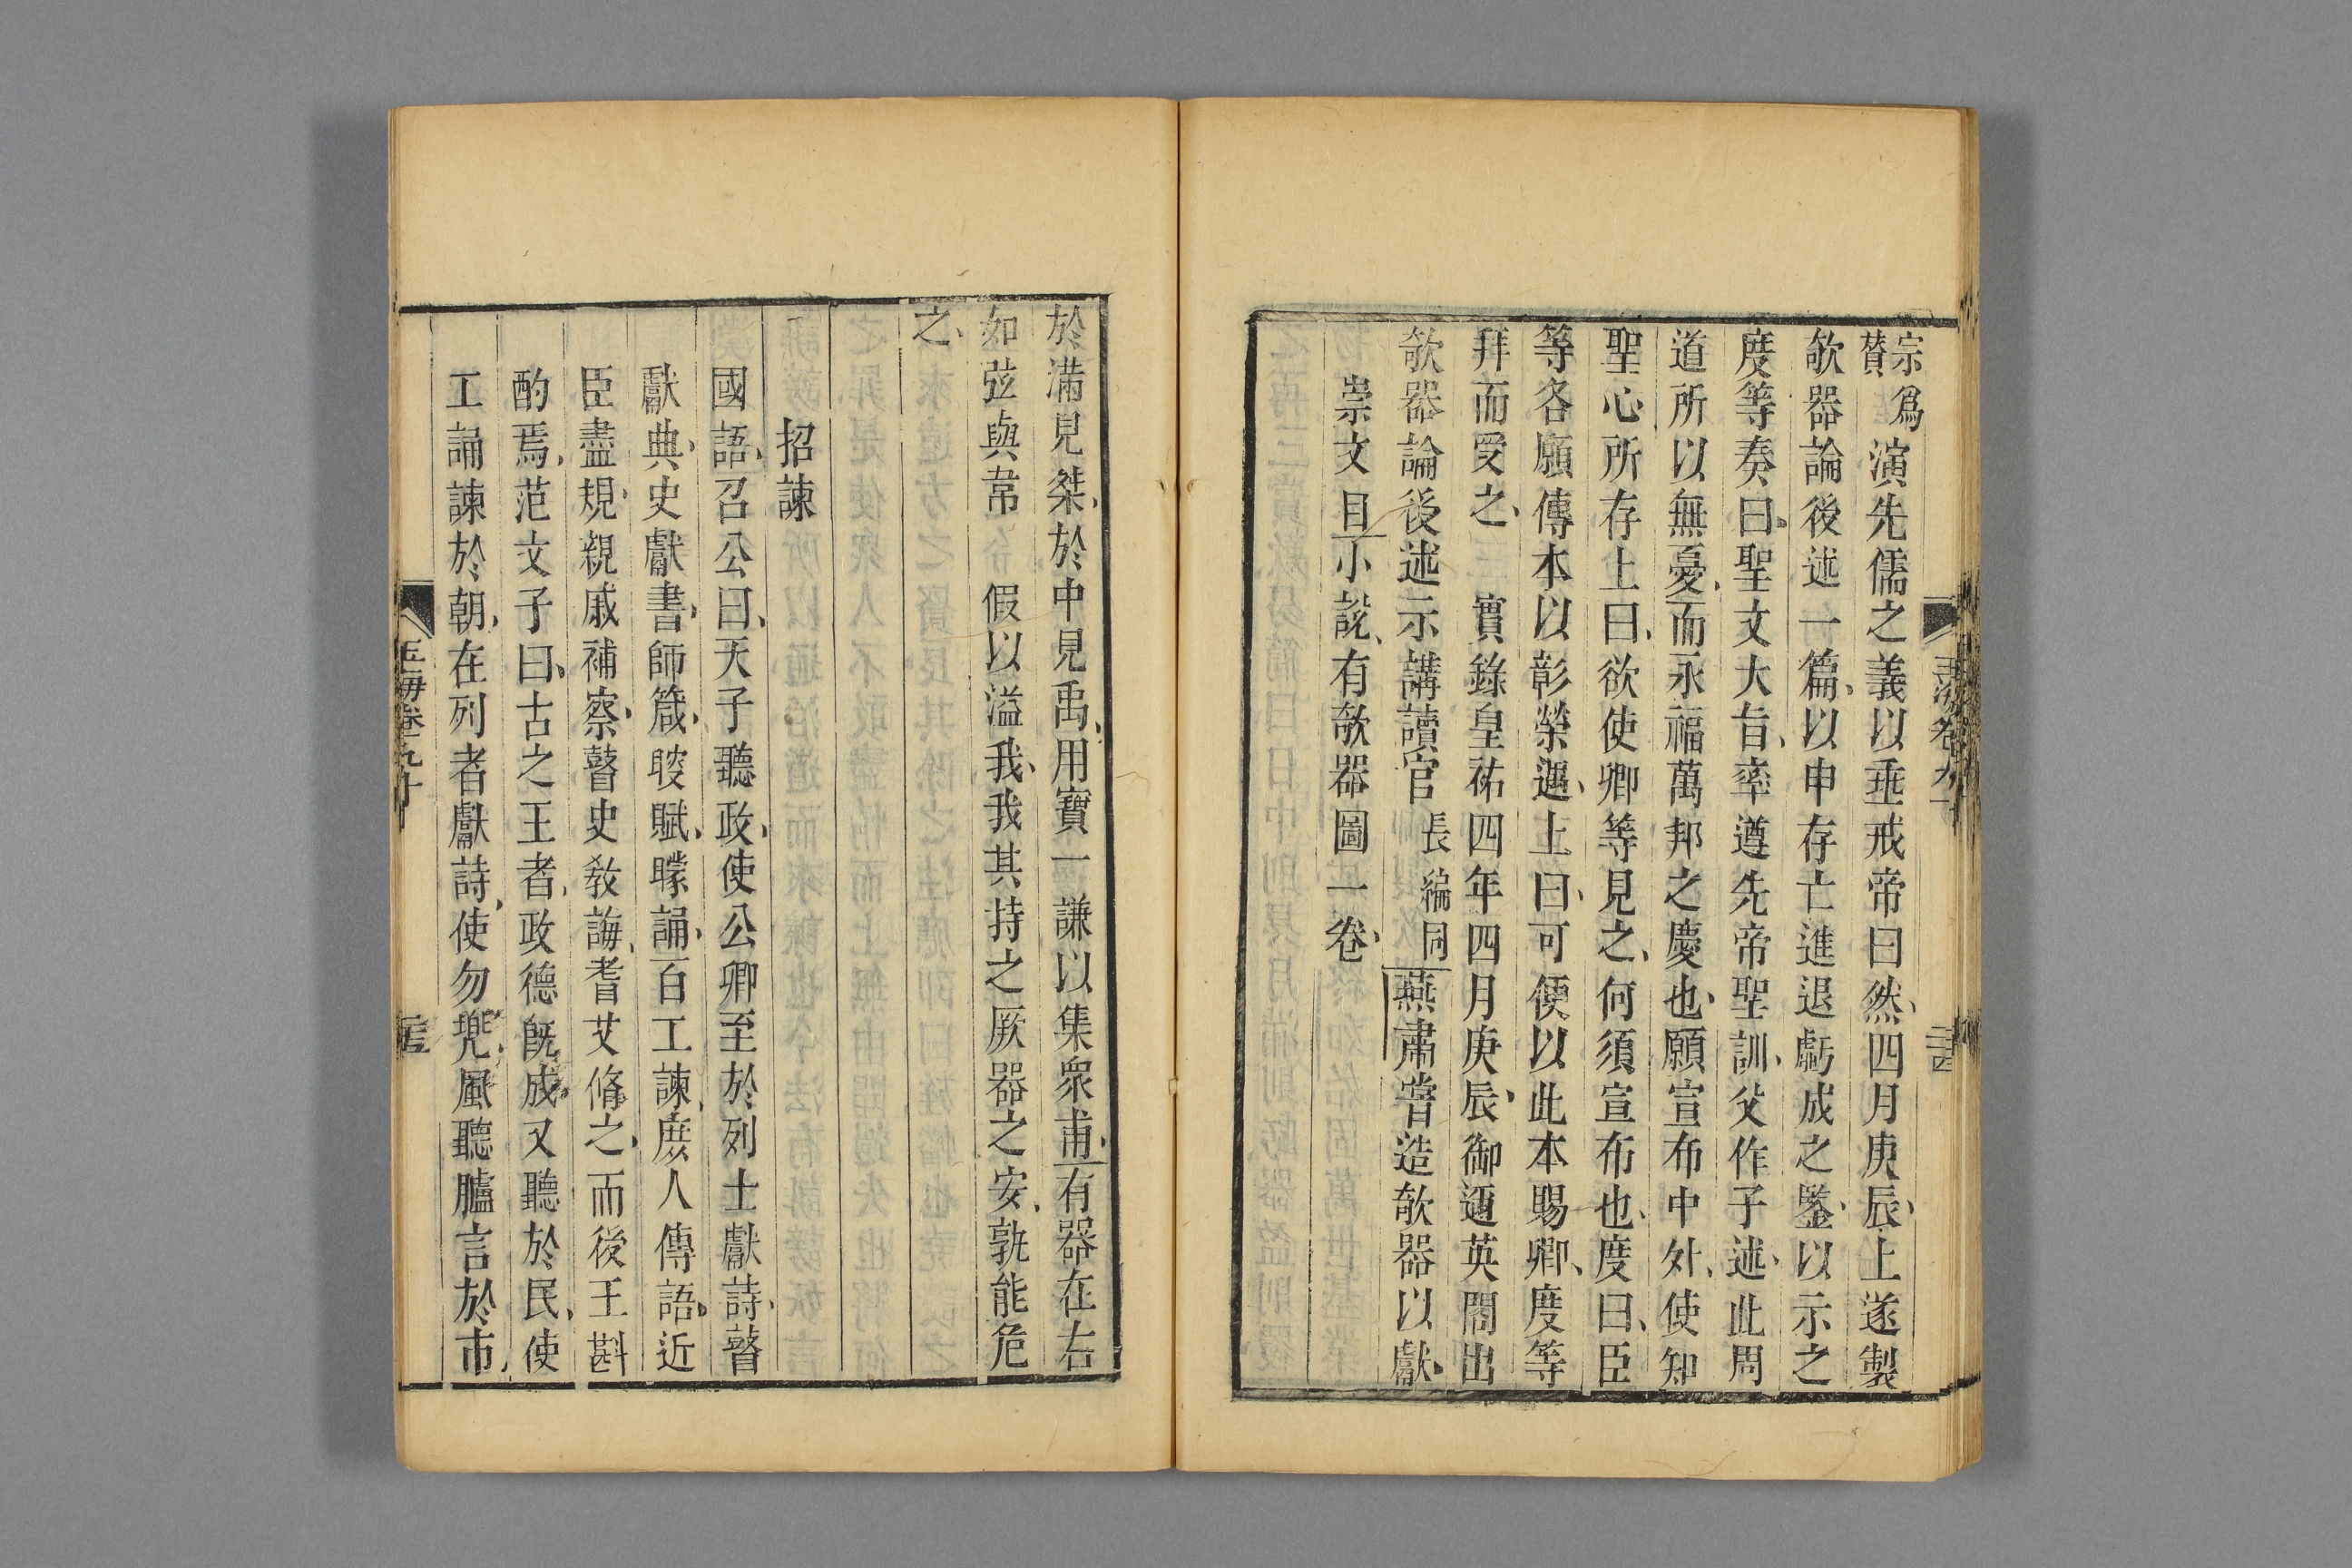 玉海卷九十
二十四
宗爲贊演先儒之義以垂戒帝曰然四月庚辰上遂製
欹器論後述一篇以申存亡進退虧成之鑒以示之
度等奏曰聖文大旨率遵先帝聖訓父作子述此周
道所以無憂而永福萬邦之慶也願宣布中外使知
聖心所存上曰欲使卿等見之何須宣布也度曰臣
等各願傳本以彰榮遇上曰可便以此本賜卿度等
拜而受之 實錄皇祐四年四月庚辰御邇英閣出
欹器論後述示講讀官長編同燕肅嘗造欹器以獻
崇文目小說有欹器圖一卷
於滿見桀於中見禹用寶一謙以集衆甫有器在右
如弦與韋 假以溢我我其持之厥器之安孰能危
之
招諫
國語召公曰天子聽政使公卿至於列士獻詩瞽
獻典史獻書師箴瞍賦矇誦百工諫庶人傳語近
臣盡規親戚補察瞽史敎誨耆艾脩之而後王斟
酌焉范文子曰古之王者政德旣成又聽於民使
工誦諫於朝在列者獻詩使勿兜風聽臚言於市
玉海卷九十